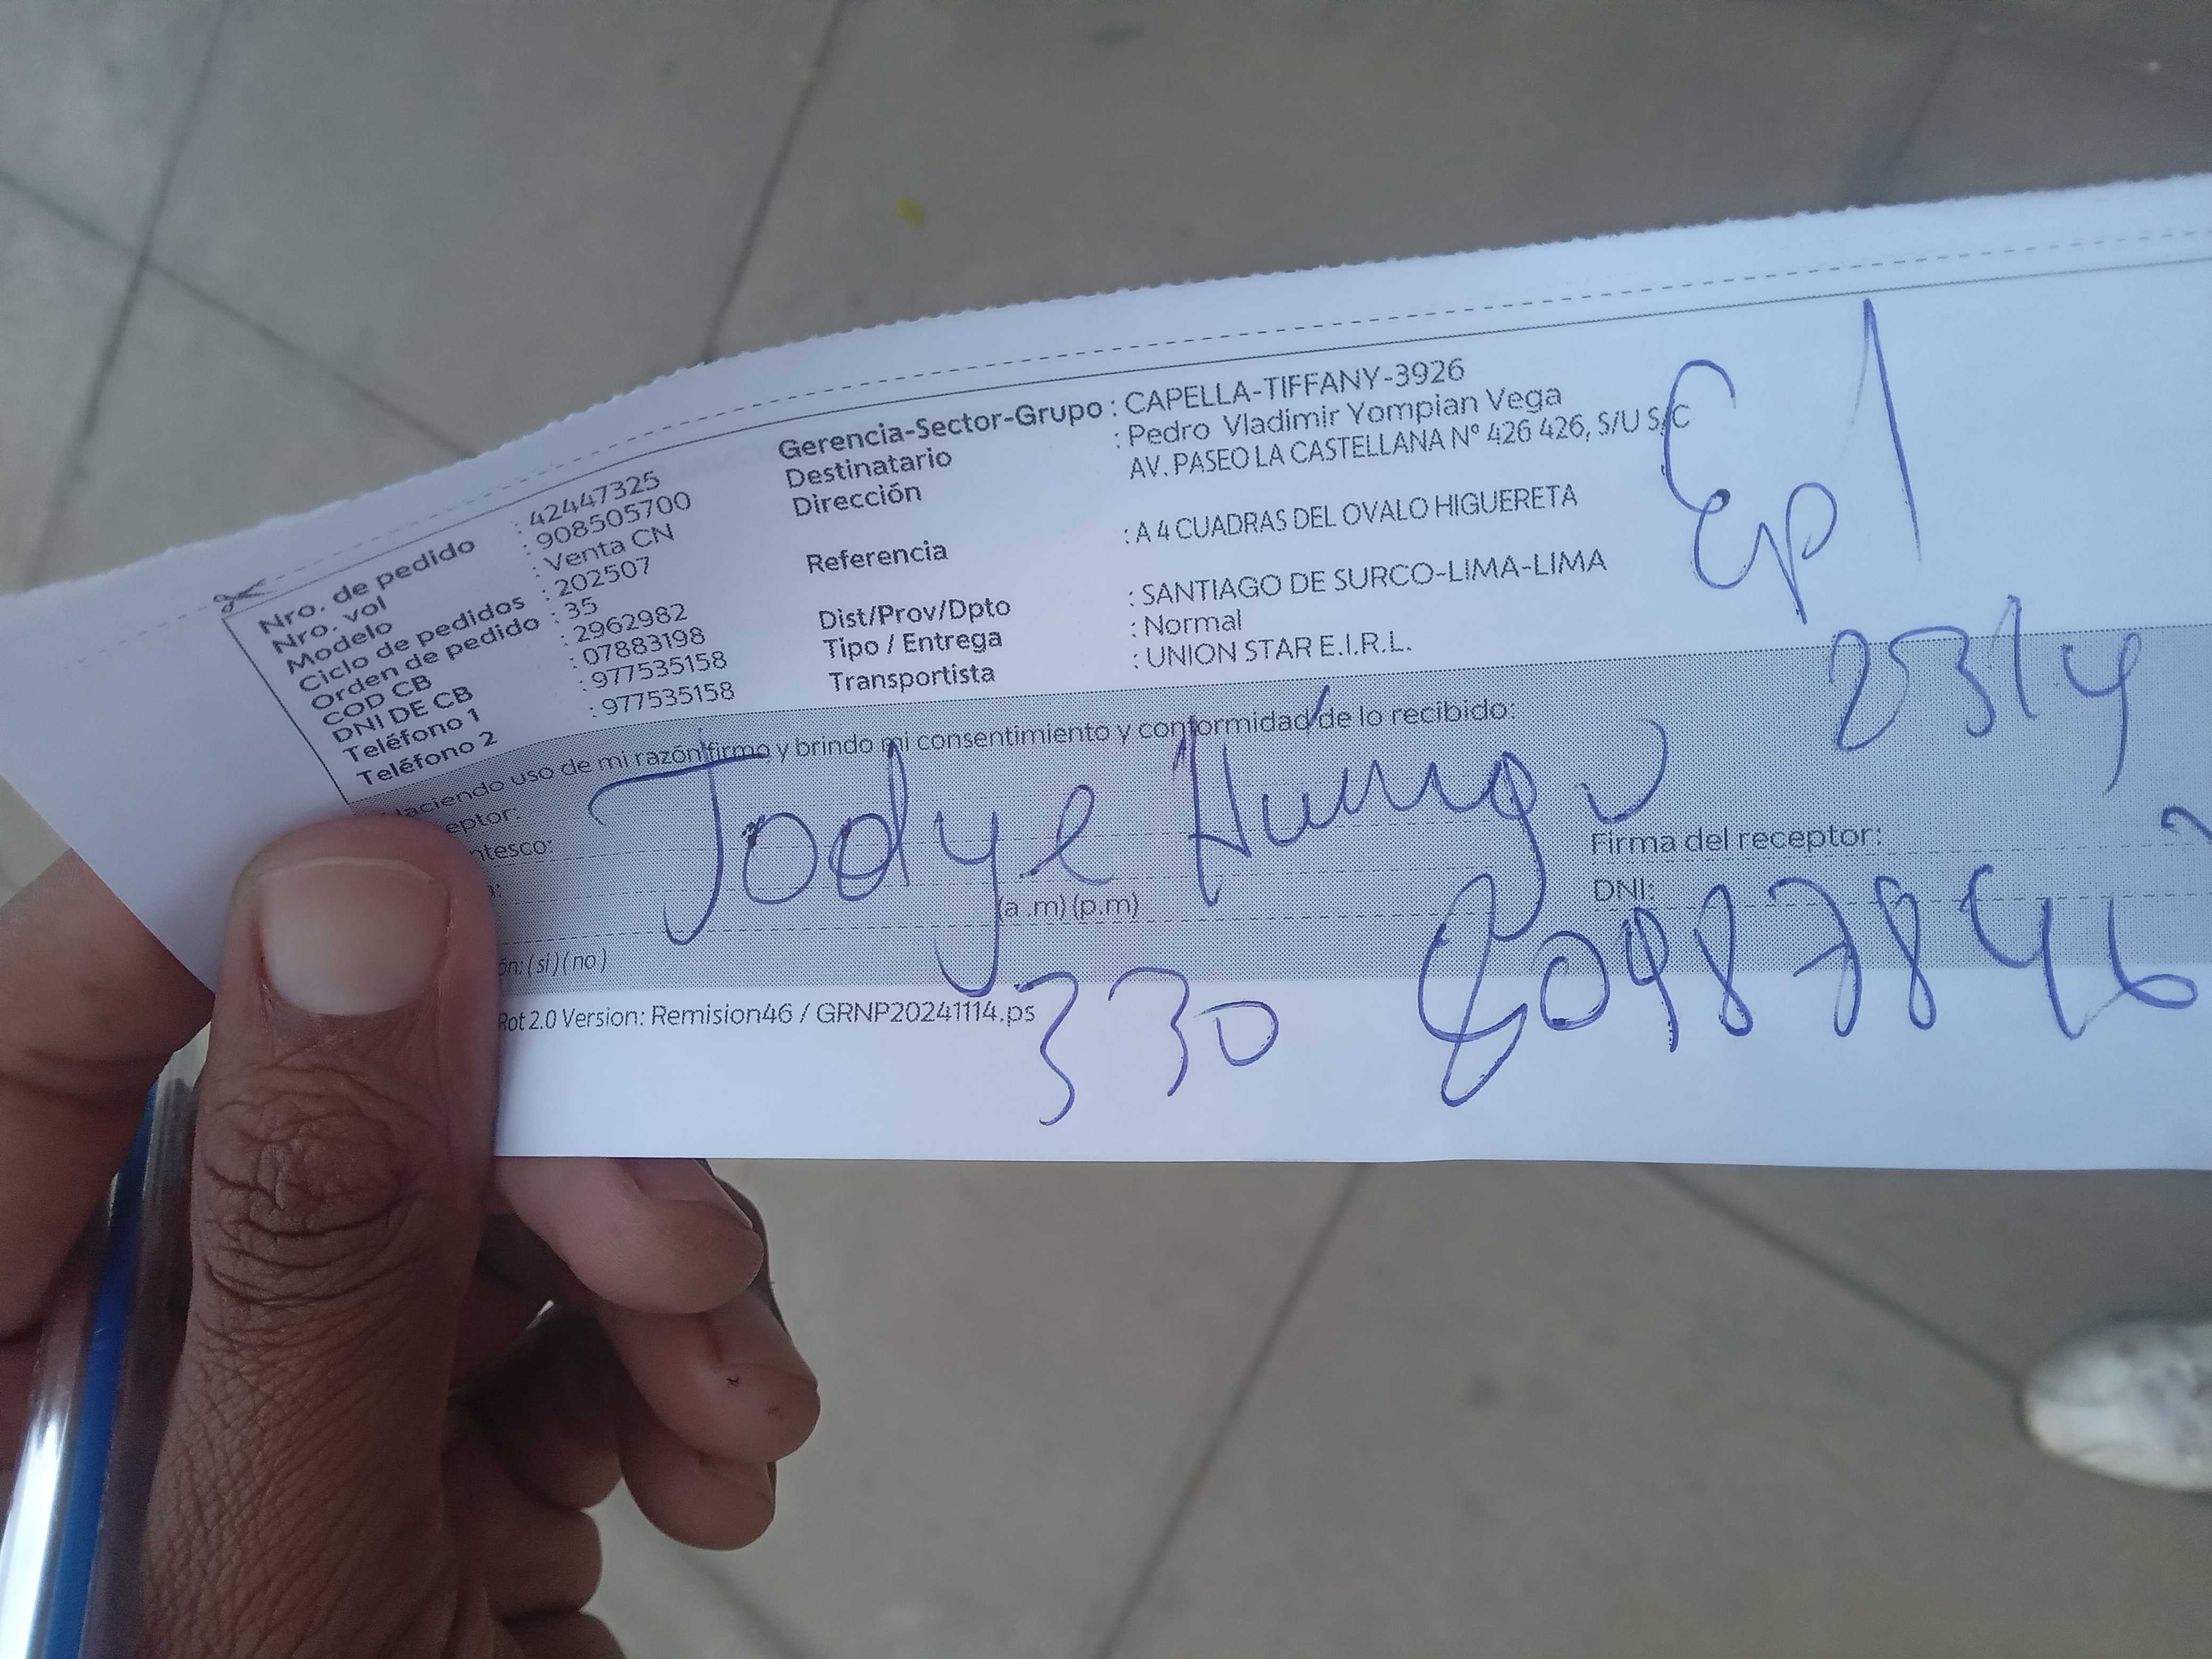 Nro. de pedido : 42447325
Nro. vol : 908505700
Modelo : Venta CN
Ciclo de pedidos : 202507
Orden de pedido : 35
COD CB : 2962982
DNI DE CB : 07883198
Teléfono 1 : 977535158
Teléfono 2 : 977535158
Gerencia-Sector-Grupo : CAPELLA-TIFFANY-3926
Destinatario : Pedro Vladimir Yompian Vega
Dirección AV. PASEO LA CASTELLANA Nº 426 426, S/U S/C
Referencia : A 4 CUADRAS DEL OVALO HIGUERETA
Dist/Prov/Dpto : SANTIAGO DE SURCO-LIMA-LIMA
Tipo / Entrega : Normal
Transportista : UNION STAR E.I.R.L.
Ep 1
2314
Haciendo uso de mi razón firmo y brindo mi consentimiento y conformidad de lo recibido:
eptor:
ntesco:
Jodye
Firma del receptor:
(a .m) (p.m)
DNI:
ón: (si) (no)
330
Rot 2.0 Version: Remision46 / GRNP20241114.ps